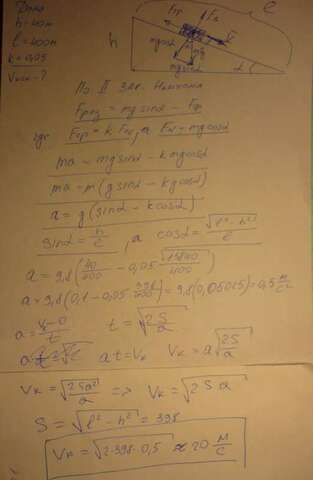 Дано
h=40м
l=400м
k=0,05
Vкон-?
Fтр
FN
l
h
mgcosα
mg
mgsinα
α
По II зак. Ньютона
Fрез=mgsinα - Fтр
где Fтр=k FN, а FN=mgcosα
ma=mgsinα - kmgcosα
ma=m(gsinα - kgcosα)
a=g(sinα - kcosα)
sinα=h/l, а cosα=√(l²-h²)/l
a=9,8(40/400 - 0,05 √/400)
a=9,8(0,1-0,05·)=9,8(0,05025)=0,5 м/с²
a=(v-0)/t t=√(2S/a)
at=Vк Vк=a√(2S/a)
Vк=√(2Sa²/a) => Vк=√(2Sa)
S=√(l²-h²)=398
Vк=√(2·398·0,5)≈20 м/с